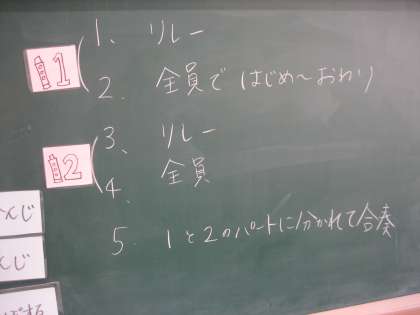 1
1、 リレー
2. 全員で はじめ〜おわり
2
3、 リレー
4. 全員
5. 1と2のパートに分かれて合奏
んじ
んじ
する